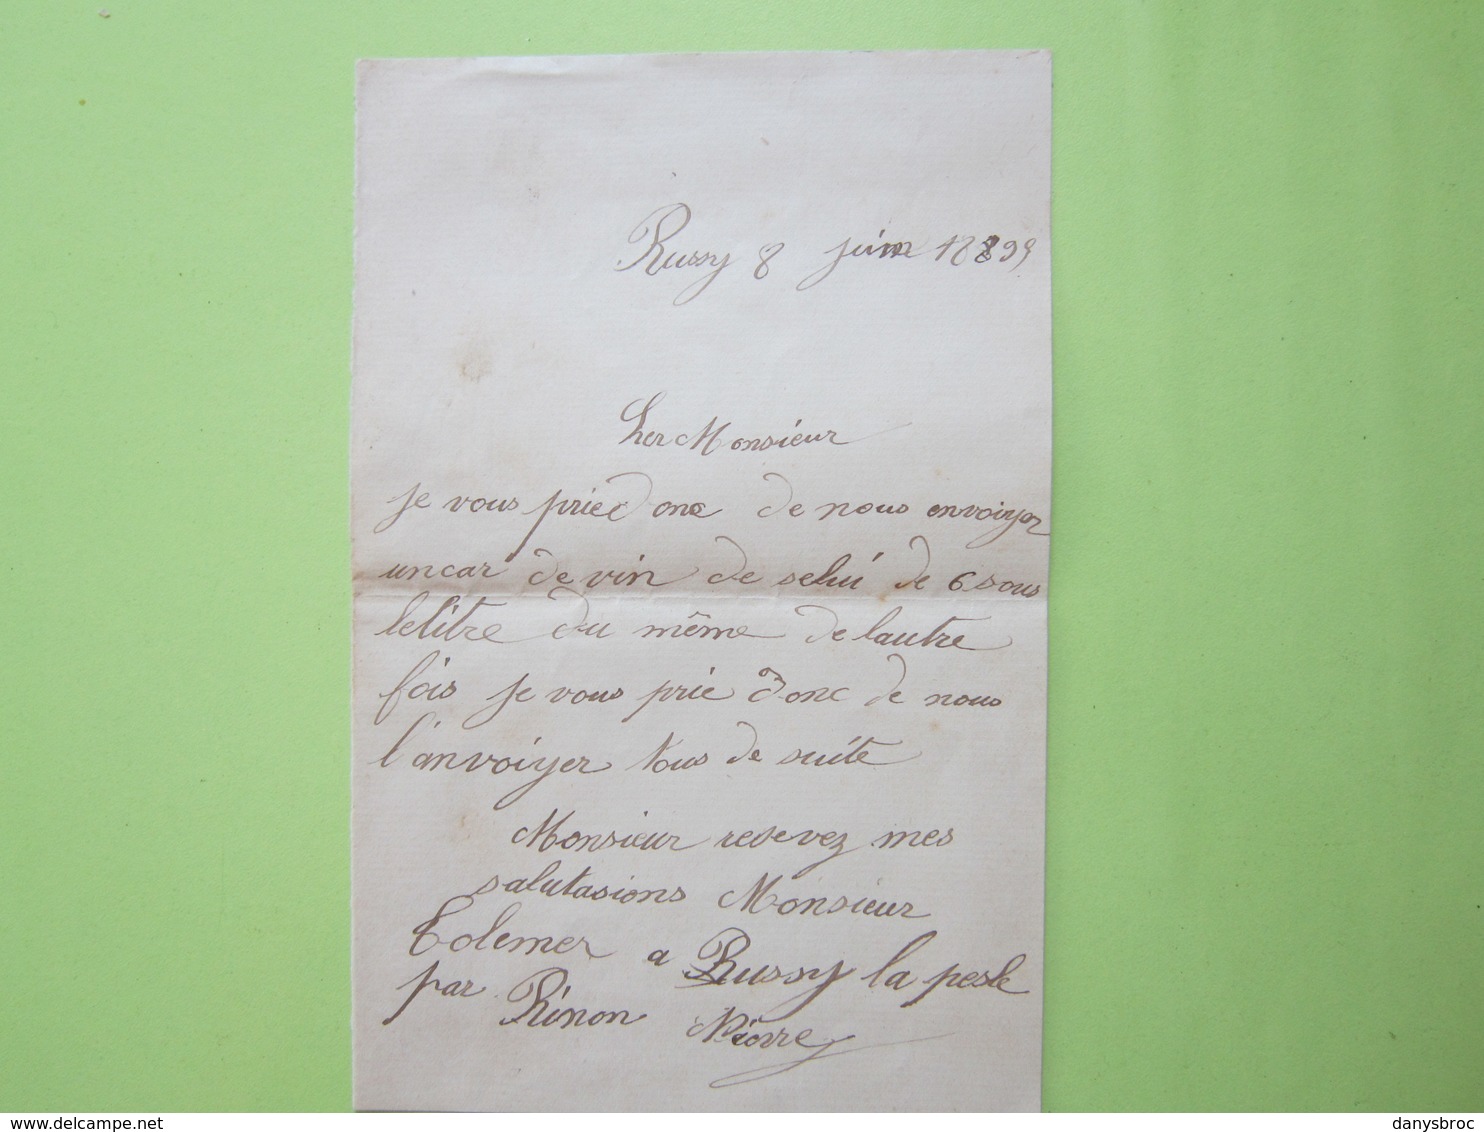 Russy 8 juin 1899
Cher Monsieur
je vous prie donc de nous envoiyer
un car de vin de selui de 6 sous
le litre du même de lautre
fois je vous prie donc de nous
l'anvoiyer tous de suite
Monsieur resevez mes
salutasions Monsieur
Tolemer a Russy la pesle
par Rinon Pierre
delcampe.net
danysbroc